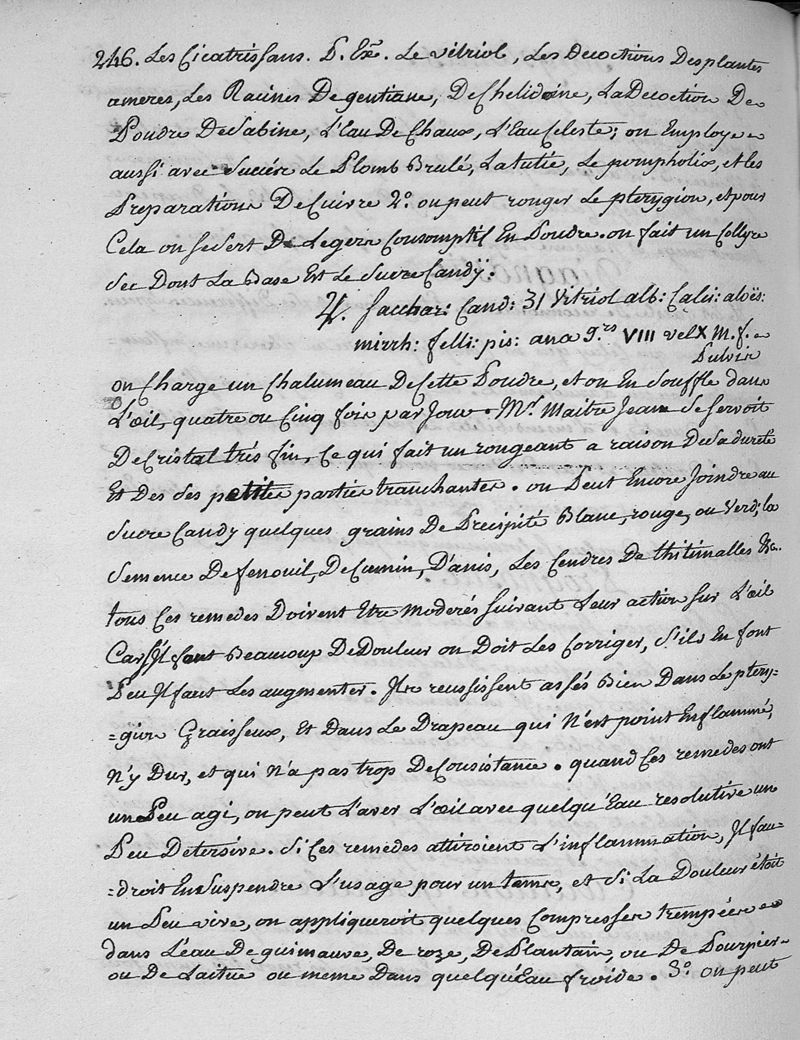 246. Les Cicatrissans. P. Ex. Le vitriol, Les Decoctions Des plantes
ameres, Les Racines De gentiane, De Chelidoine, La Decoction De
Poudre De Sabine, L'Eau De Chaux, L'Eau Celeste; on Employe
aussi avec succés Le Plomb Brulé, La tutie, Le pompholix, et les
Preparations De Cuivre 2.° on peut ronger Le pterygion, et pour
Cela on se sert De Legers Consomptif En Poudre. on fait un Collyre
Sec Dont La Base Est Le Sucre Candÿ.
♃. Sacchar: Cand: 31 Vitriol alb: Calci: aloës:
mirrh: felli: pis: ana g.rs VIII vel X M. f.
Pulvis
on Charge un Chalumeau De Cette Poudre, et on En souffle dans
L'œil, quatre ou Cinq fois par Jour. Mr. Maitre Jean se servoit
De Cristal trés fin, Ce qui fait un rongeant a raison De sa dureté
Et Des ses petites parties tranchantes. on Peut Encore Joindre au
Sucre Candy quelques grains De Precipité Blanc, rouge, ou Verd; la
Semence De fenouil, De Cumin, D'anis, Les Cendres De thitimalles &c.
tous Ces remedes Doivent Etre moderés suivant Leur action sur L'œil
Car S'Il font Beaucoup De Douleur on Doit Les Corriger, S'ils En font
Peu Il faut Les augmenter. Ils reussissent assés Bien Dans Le ptery=
=gion Graisseux, Et Dans Le Drapeau qui N'est point Enflammé,
N'y Dur, et qui N'a pas trop De Consistance. quand Ces remedes ont
un Peu agi, on peut L'aver L'œil avec quelqu'Eau resolutive un
Peu Detersive. Si Ces remedes attiroient L'inflammation, Il fau=
=droit En Suspendre L'usage pour un tems, et Si La Douleur étoit
un Peu vive, on appliqueroit quelques Compresses trempées
dans L'éau De guimauve, De roze, De Plantain, ou De Pourpier
ou De Laitue ou meme Dans quelqu'Eau froide. 3.° on peut